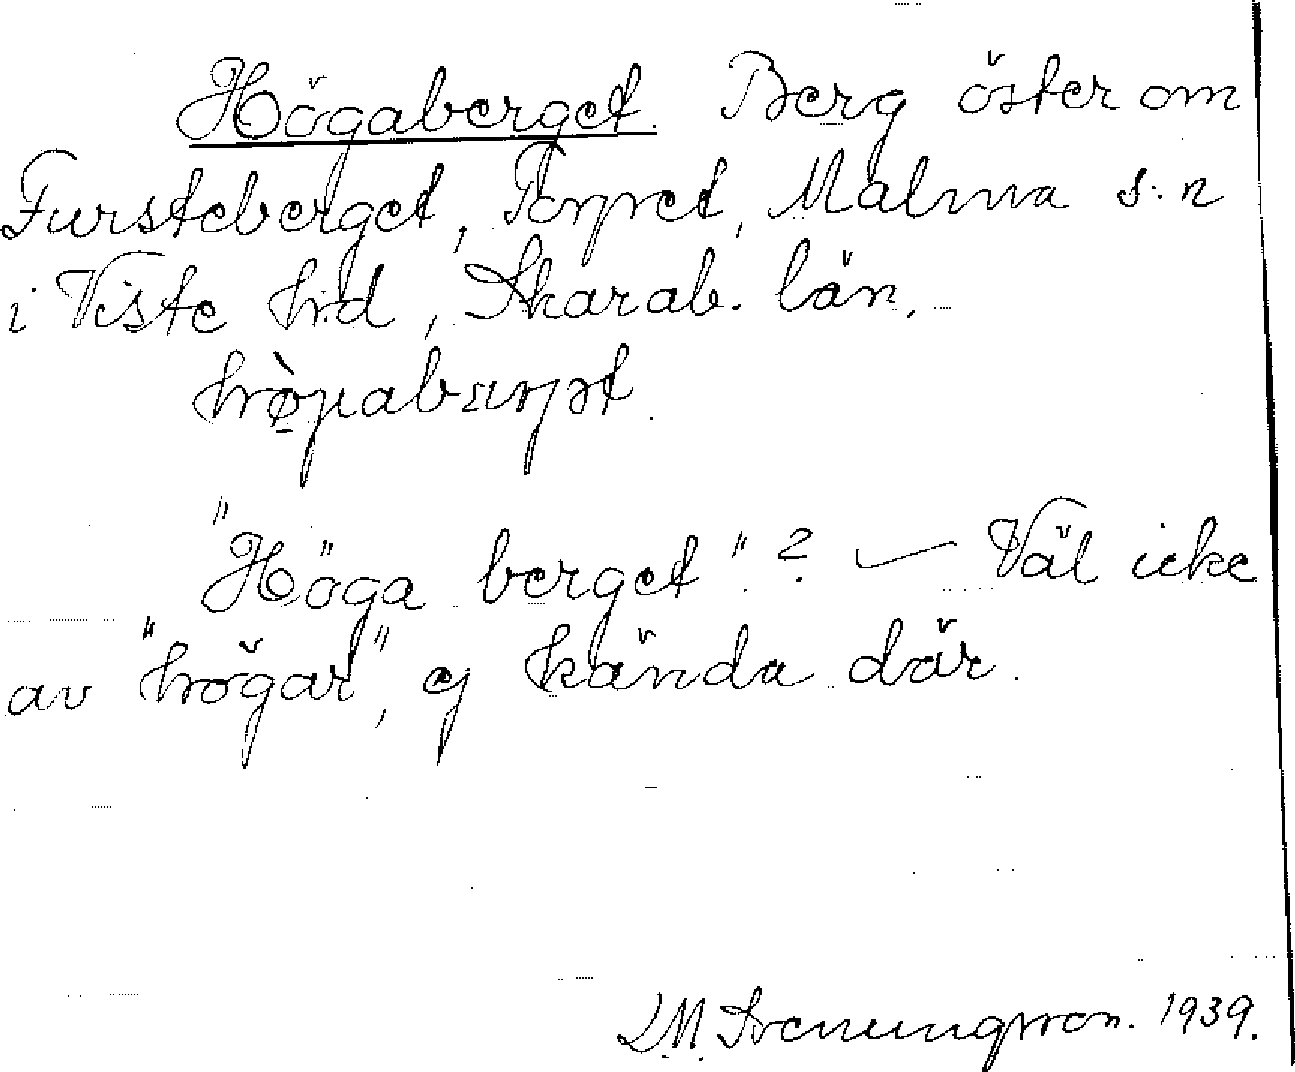 Högaberget. Berg öster om
Fursteberget, Torpet, Malma s:n
i Viste hd, Skarab. län.
"Höga berget"? — Väl icke
av "högar", ej kända där.
1939.